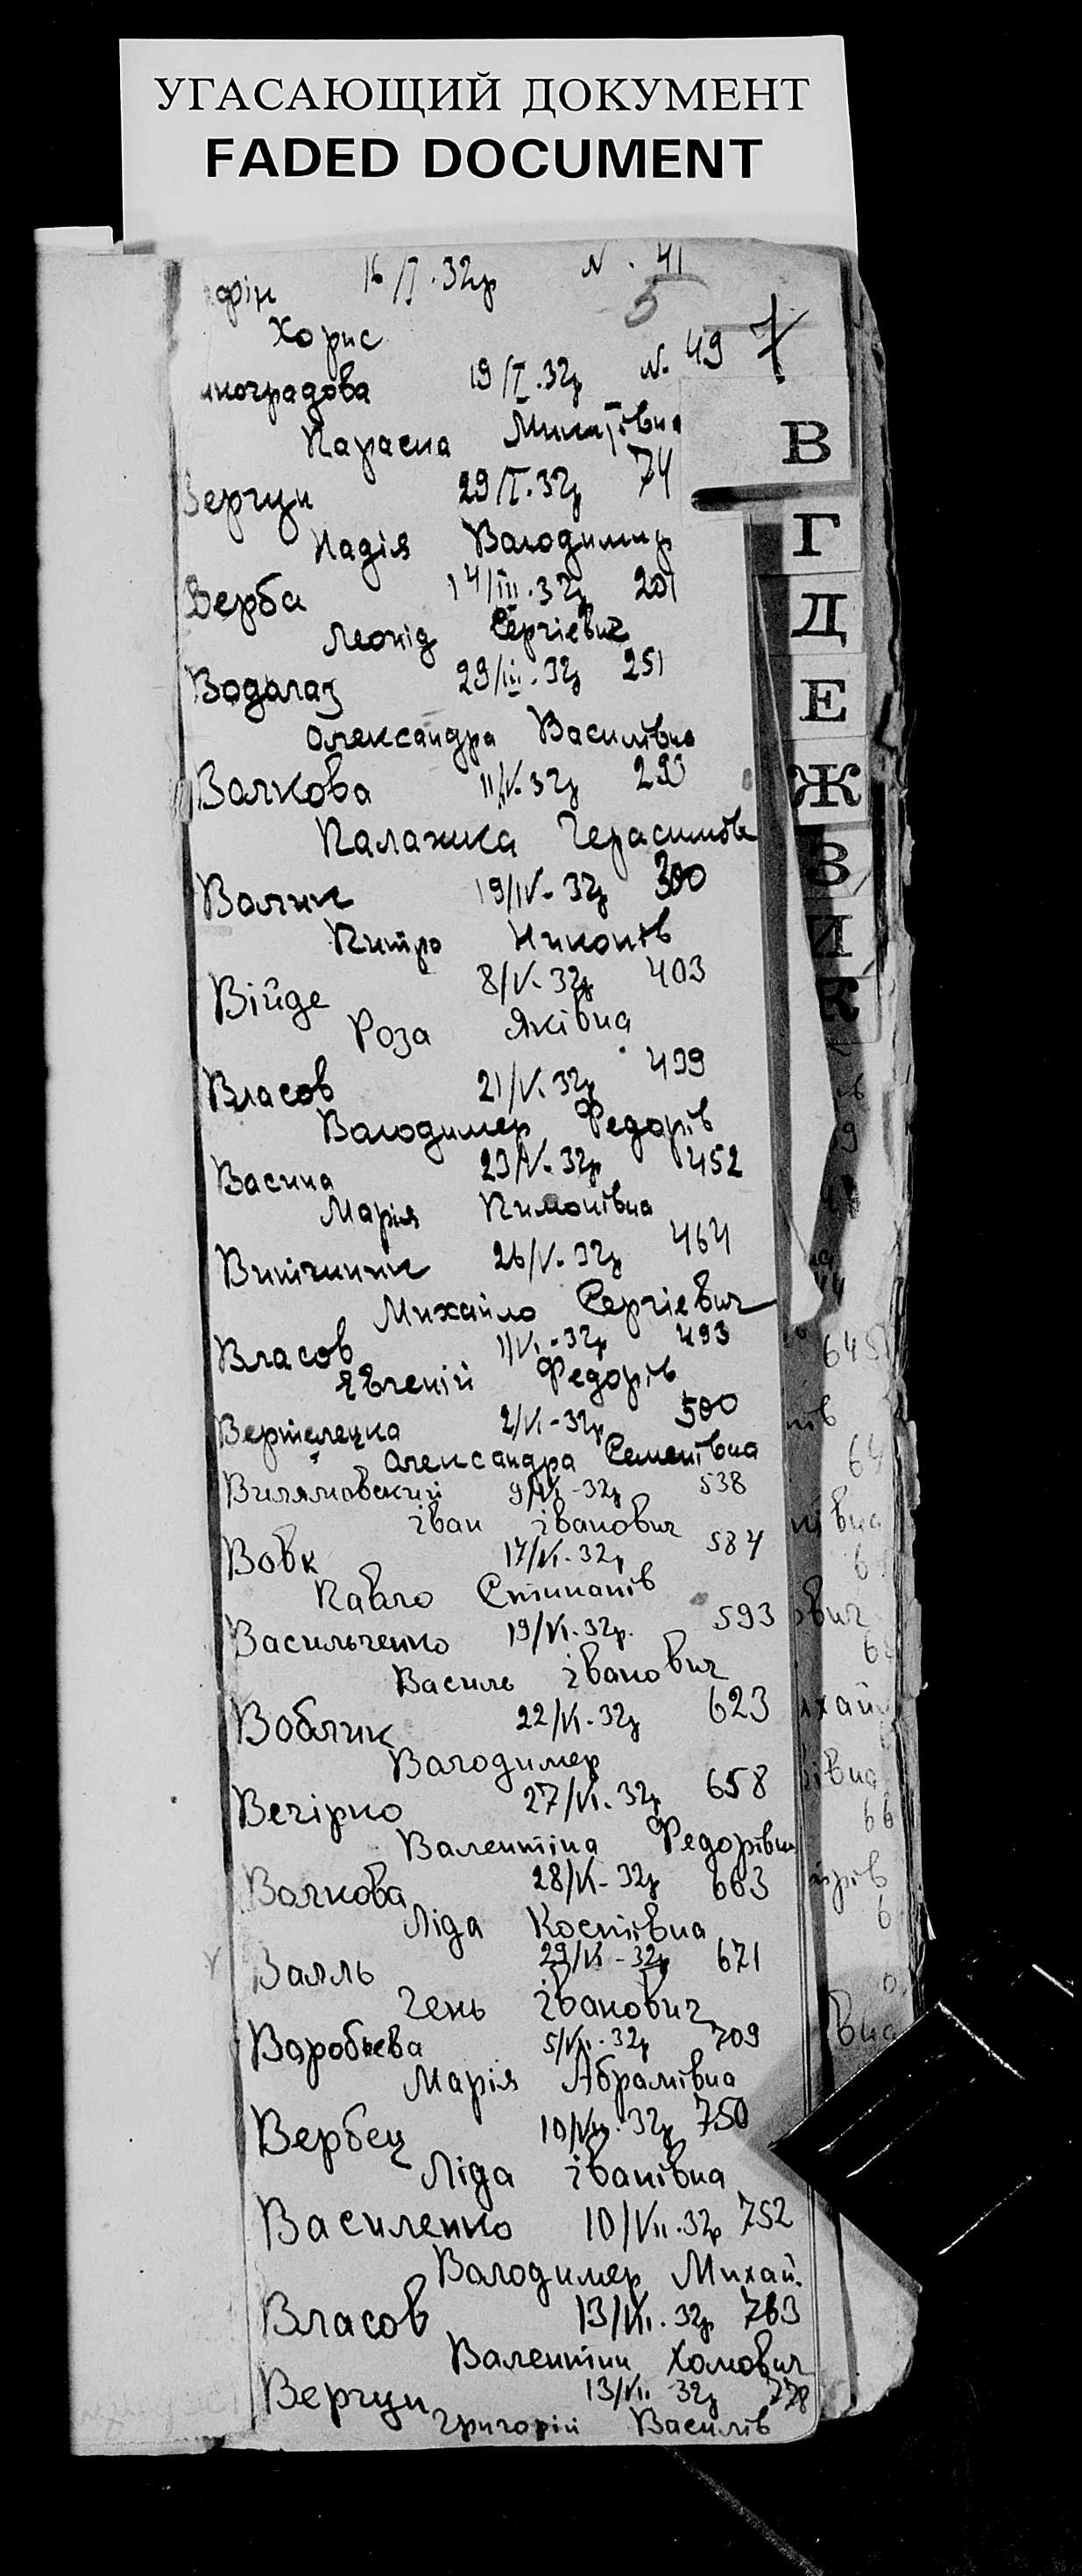 УГАСАЮЩИЙ ДОКУМЕНТ
FADED DOCUMENT
16/I.32р N. 41
5
Хорис
19/I.32р N. 49 7
Параска Микитівна
В
29/I.32р 74
Надія Володимир
Г
Верба 14/III.32р 201
Леонід Сергієвич
Д
Водолаз 29/III.32р 251
Е
Олександра Василівна
Волкова 11/IV.32р 293
Ж
Палажка Герасимов
З
Волик 19/IV.32р 300
Никонів
И
Війде 8/V.32р 403
К
Роза Яківна
Власов 21/V.32р 439
Володимер Федорів
Васина 23/V.32р 452
Марія Пимонівна
26/V.32р 464
Михайло Сергієвич
Власов 1/VI-32р 493
Євгеній Федорів
645
2/VI-32р 500
Олександра Семенівна
9/VI-32р 538
іван іванович
Вовк 17/VI.32р 584
Павло Стіпанів
Васильченко 19/VI.32р. 593
Василь іванович
Воблик 22/VI.32р 623
Володимер
Вечірко 27/VI.32р 658
Валентіна Федорівна
Волкова 28/VI-32р 663
Ліда Костівна
Валль 29/VI-32р 671
Гень іванович
Воробьева 5/VII.32р 709
Марія Абрамівна
Вербец 10/VII.32р 750
Ліда іванівна
Василенко 10/VII.32р 752
Володимер Михай.
Власов 13/VII.32р 763
Валентин Хомович
Вергун 13/VII 32р 778
Григорій Василів